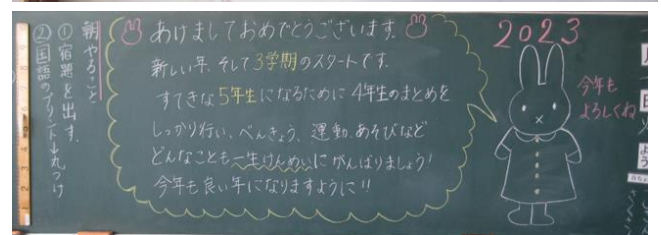 朝やること
①宿題を出す。
②国語のプリント→丸つけ
あけましておめでとうございます。
新しい年、そして3学期のスタートです。
すてきな5年生になるために4年生のまとめを
しっかり行い、べんきょう、運動、あそびなど
どんなことも一生けんめいにがんばりましょう!
今年も良い年になりますように!!
2023
今年も
よろしくね